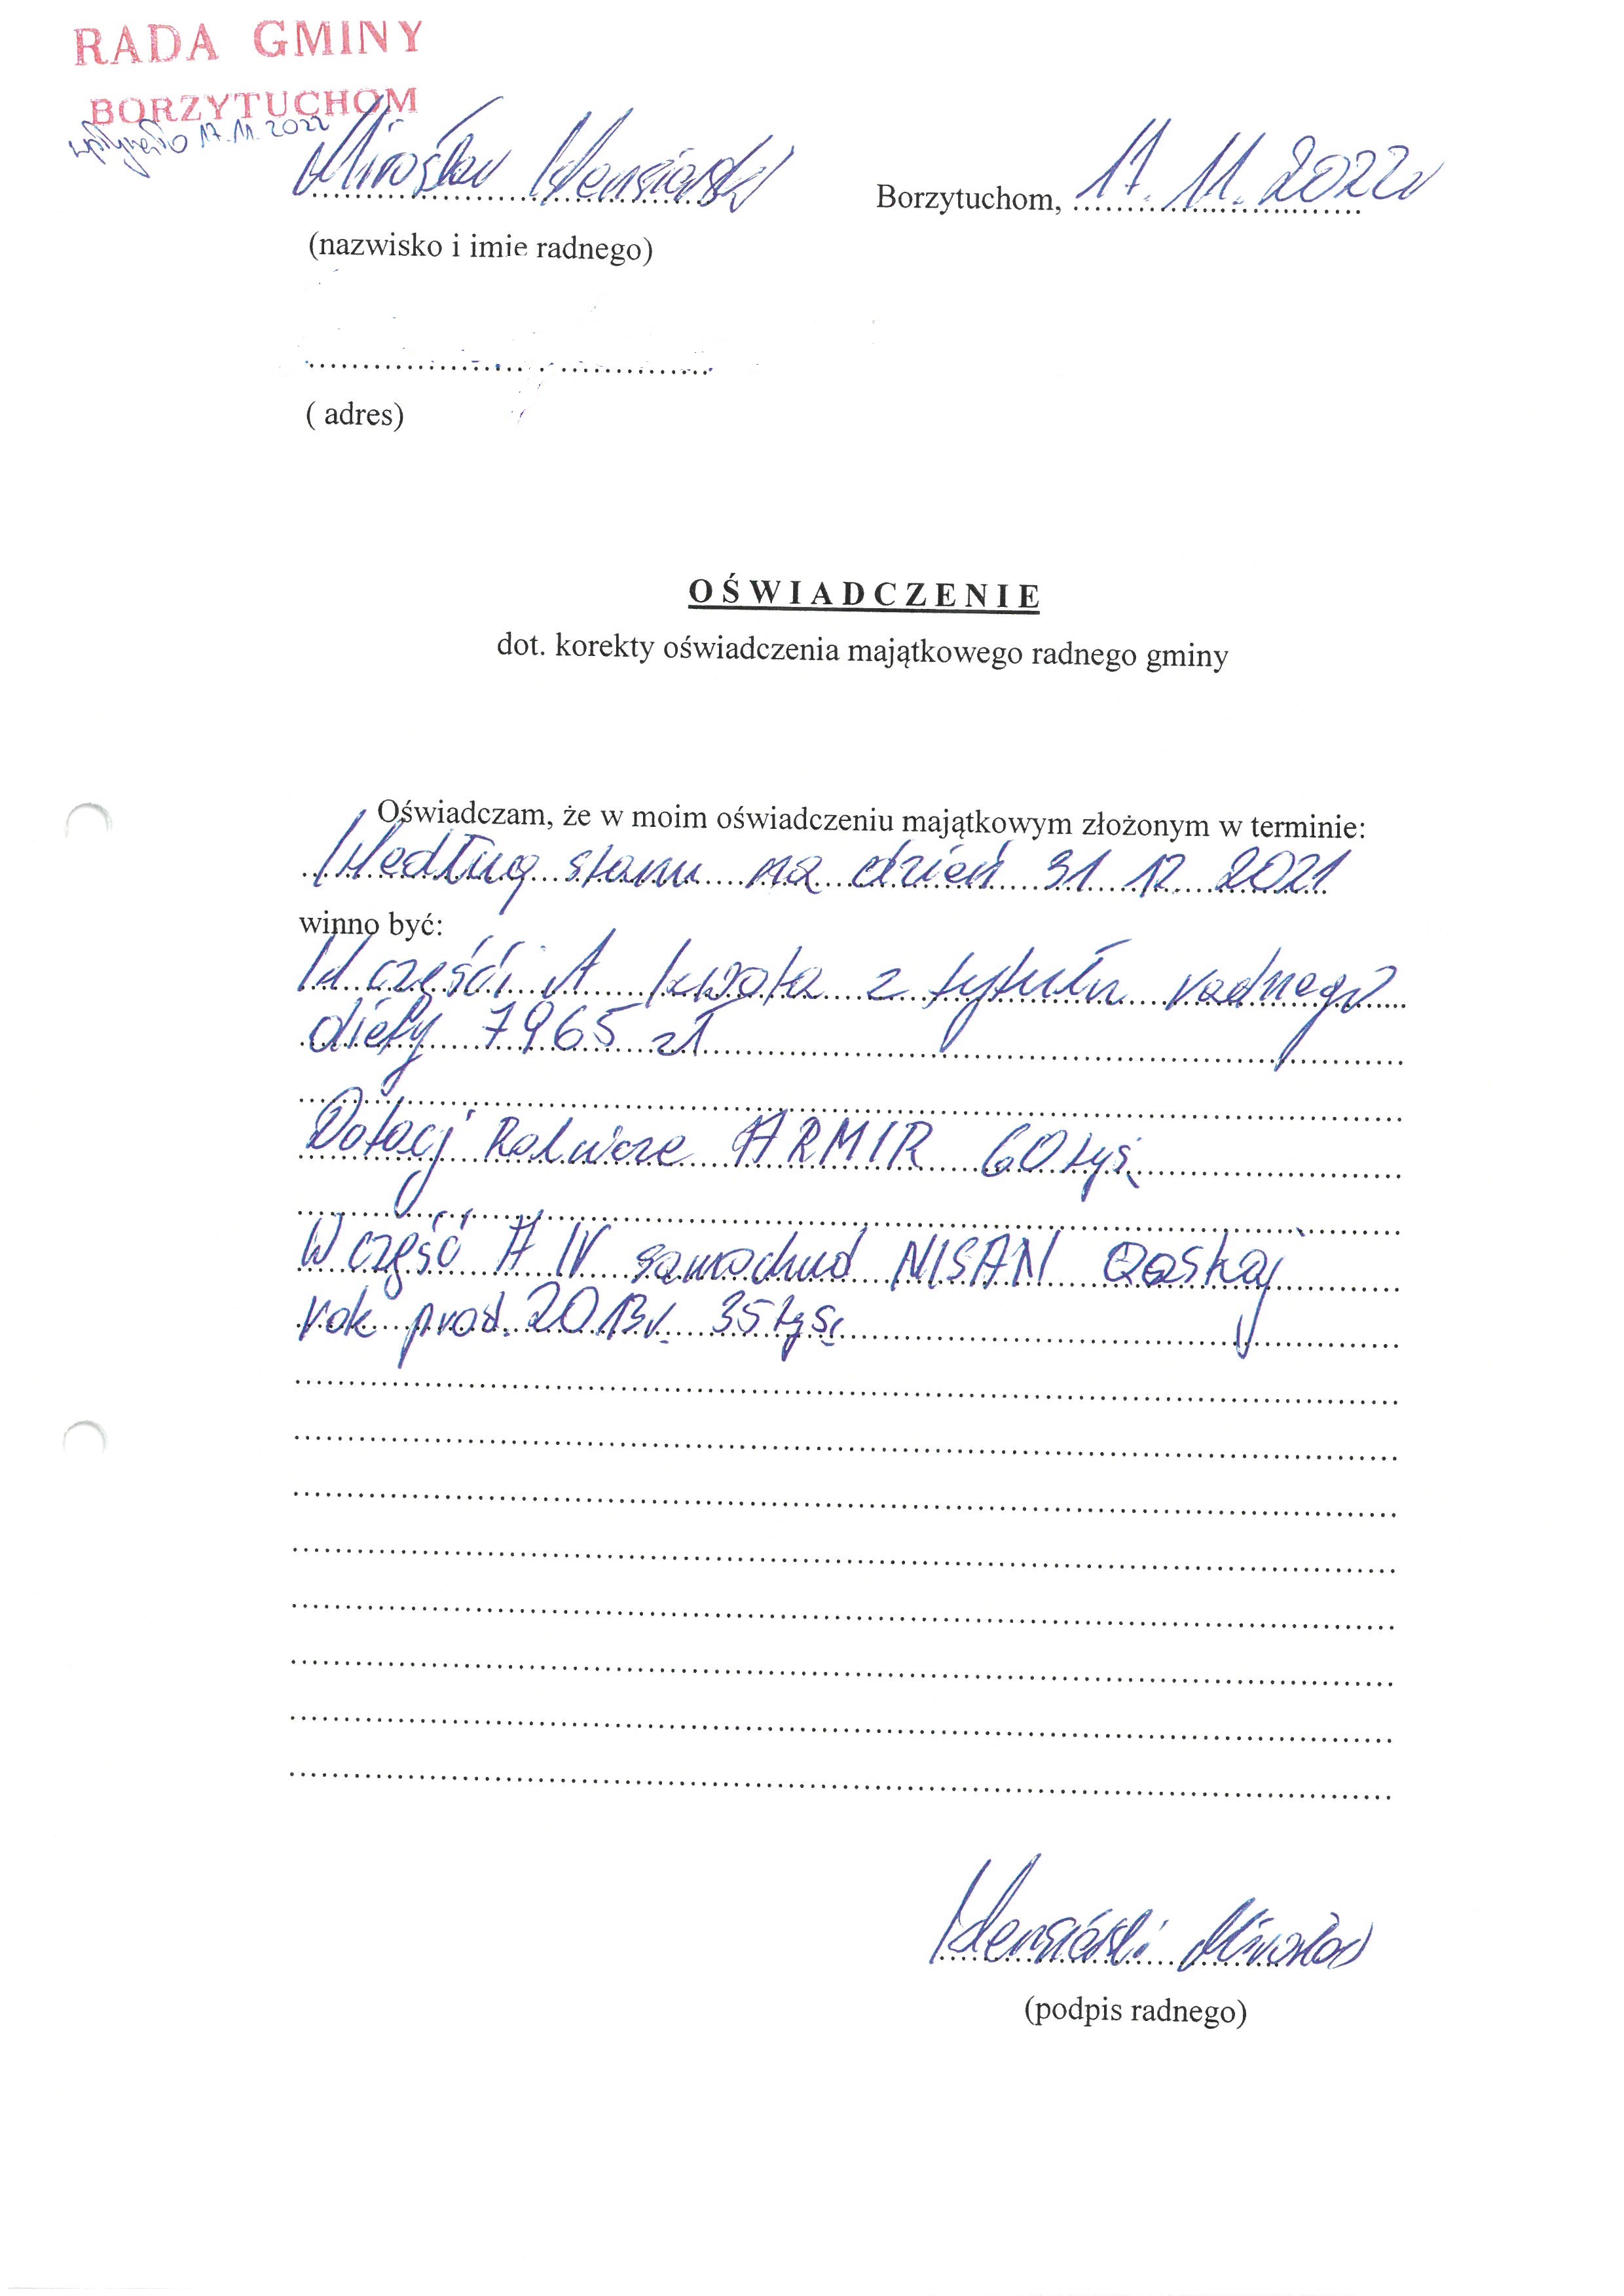 RADA GMINY
BORZYTUCHOM
wpłynęło 17.11.2022
Mirosław
Borzytuchom, 17.11.2022r
(nazwisko i imie radnego)
( adres)
OŚWIADCZENIE
dot. korekty oświadczenia majątkowego radnego gminy
Oświadczam, że w moim oświadczeniu majątkowym złożonym w terminie:
Według stanu na dzień 31 12 2021
winno być:
W części A kwota z tytułu radnego
diety 7965 zł
Dotacj Rolnicze ARMIR 60 tyś
W część A IV samochud NISAN Qaskaj
rok prod. 2013r. 35 tyś
Mirosław
(podpis radnego)